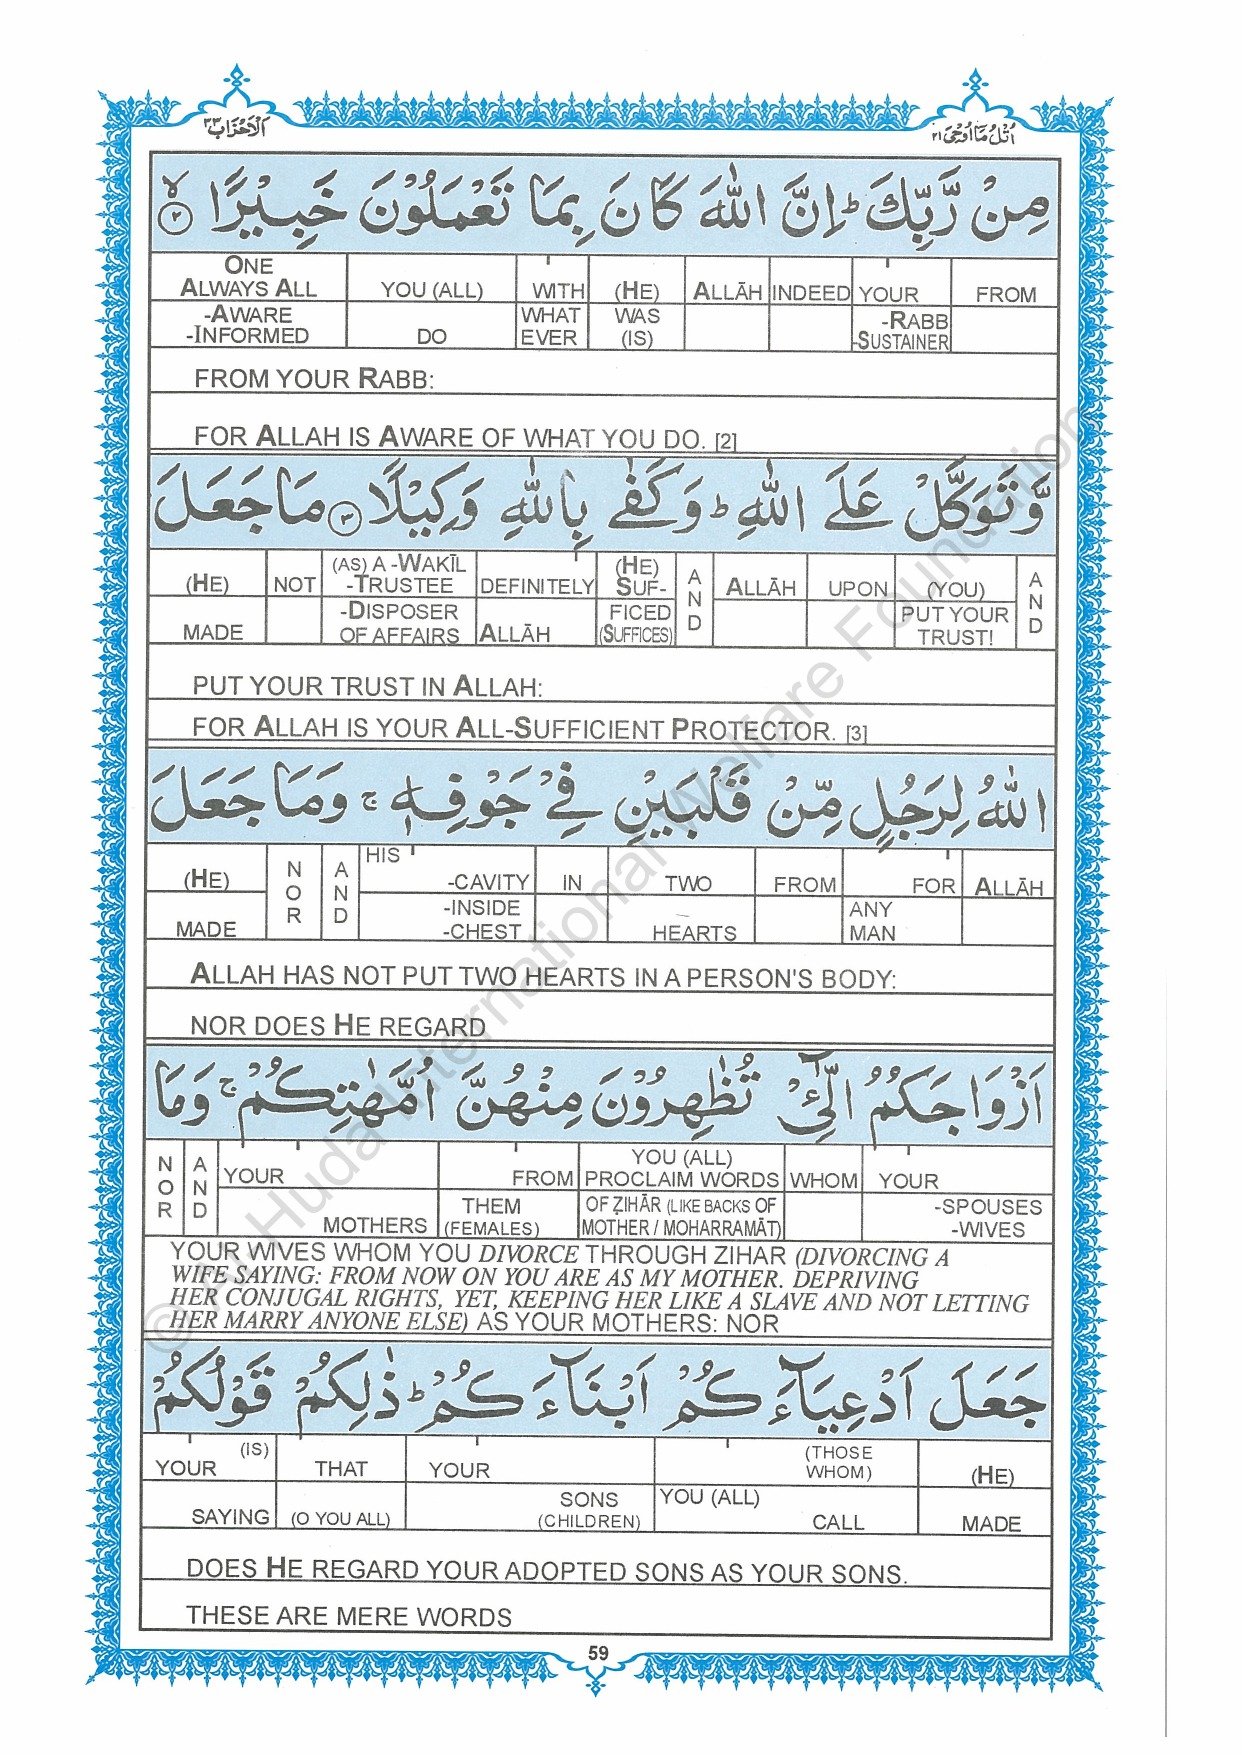 اَلْاَحْزَاب ٣٣
اُتْلُ مَا اُوْحِيَ ٢١
مِنْ رَّبِّكَ ؕ اِنَّ اللّٰهَ كَانَ بِمَا تَعْمَلُوْنَ خَبِيْرًا ۙ ﴿٢﴾
ONE ALWAYS ALL | YOU (ALL) | WITH | (HE) | ALLĀH | INDEED | YOUR | FROM
-AWARE -INFORMED | DO | WHAT EVER | WAS (IS) | -RABB -SUSTAINER
FROM YOUR RABB:
FOR ALLAH IS AWARE OF WHAT YOU DO. [2]
وَّتَوَكَّلْ عَلَى اللّٰهِ ؕ وَكَفٰى بِاللّٰهِ وَكِيْلًا ﴿٣﴾ مَا جَعَلَ
(HE) | NOT | (AS) A -WAKĪL -TRUSTEE | DEFINITELY | (HE) SUF- | AND | ALLĀH | UPON | (YOU) | AND
MADE | -DISPOSER OF AFFAIRS | ALLĀH | FICED (SUFFICES) | PUT YOUR TRUST!
PUT YOUR TRUST IN ALLAH:
FOR ALLAH IS YOUR ALL-SUFFICIENT PROTECTOR. [3]
اللّٰهُ لِرَجُلٍ مِّنْ قَلْبَيْنِ فِيْ جَوْفِهٖ ۚ وَمَا جَعَلَ
(HE) | NOR | AND | HIS -CAVITY | IN | TWO | FROM | FOR | ALLĀH
MADE | -INSIDE -CHEST | HEARTS | ANY MAN
ALLAH HAS NOT PUT TWO HEARTS IN A PERSON'S BODY:
NOR DOES HE REGARD
اَزْوَاجَكُمُ الّٰٓـِٔيْ تُظٰهِرُوْنَ مِنْهُنَّ اُمَّهٰتِكُمْ ۚ وَمَا
NOR | AND | YOUR | FROM | YOU (ALL) PROCLAIM WORDS | WHOM | YOUR
MOTHERS | THEM (FEMALES) | OF ẒIHĀR (LIKE BACKS OF MOTHER / MOHARRAMĀT) | -SPOUSES -WIVES
YOUR WIVES WHOM YOU DIVORCE THROUGH ZIHAR (DIVORCING A
WIFE SAYING: FROM NOW ON YOU ARE AS MY MOTHER. DEPRIVING
HER CONJUGAL RIGHTS, YET, KEEPING HER LIKE A SLAVE AND NOT LETTING
HER MARRY ANYONE ELSE) AS YOUR MOTHERS: NOR
جَعَلَ اَدْعِيَآءَكُمْ اَبْنَآءَكُمْ ؕ ذٰلِكُمْ قَوْلُكُمْ
YOUR (IS) | THAT | YOUR | (THOSE WHOM) | (HE)
SAYING | (O YOU ALL) | SONS (CHILDREN) | YOU (ALL) CALL | MADE
DOES HE REGARD YOUR ADOPTED SONS AS YOUR SONS.
THESE ARE MERE WORDS
59
© Al Huda International Welfare Foundation